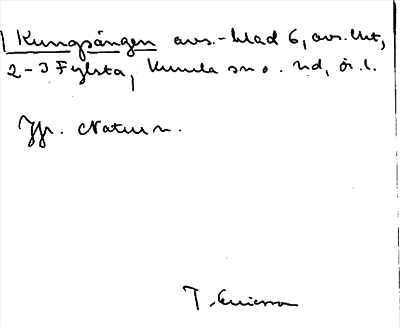 Kungsängen avs.-blad 6, avs. Utt,
2-3 Fylsta, Kumla sn o. hd, ör. l.
Jfr. Naturn.
T. Ericsson